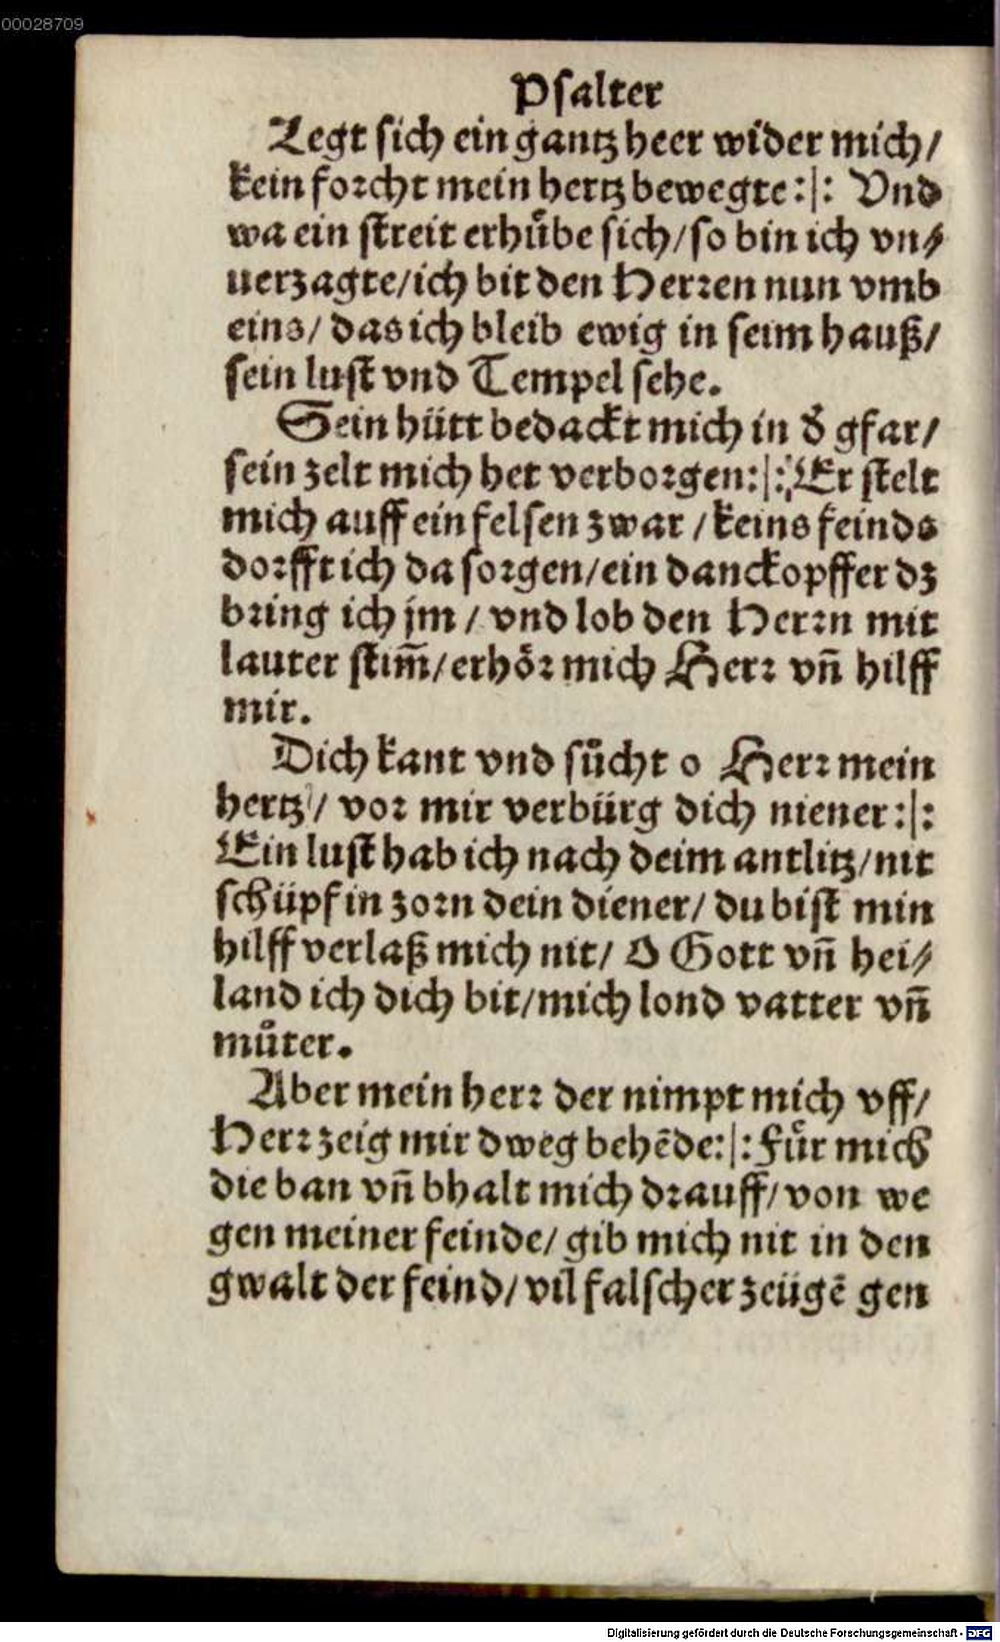 00028709
Psalter
Legt sich ein gantz heer wider mich/
kein forcht mein hertz bewegte:|: Vnd
wa ein streit erhuͤbe sich/so bin ich vn⸗
uerzagte/ich bit den Herren nun vmb
eins/ das ich bleib ewig in seim hauß/
sein lust vnd Tempel sehe.
Sein hütt bedackt mich in d̕ gfar/
sein zelt mich het verborgen:|: Er stelt
mich auff ein felsen zwar /keins feinds
dorfft ich da sorgen/ein danckopffer dz
bring ich jm / vnd lob den Herrn mit
lauter stim̃/erhoͤr mich Herr vñ hilff
mir.
Dich kant vnd suͦcht o Herr mein
hertz / vor mir verbürg dich niener:|:
Ein lust hab ich nach deim antlitz/nit
schüpf in zorn dein diener/ du bist min
hilff verlaß mich nit/ O Gott vñ hei⸗
land ich dich bit/mich lond vatter vñ
muͦter.
Aber mein herr der nimpt mich vff/
Herr zeig mir dweg behẽde:|: Fuͤr mich
die ban vñ bhalt mich drauff/ von we
gen meiner feinde/ gib mich nit in den
gwalt der feind/ vil falscher zeügẽ gen
Digitalisierung gefördert durch die Deutsche Forschungsgemeinschaft - DFG